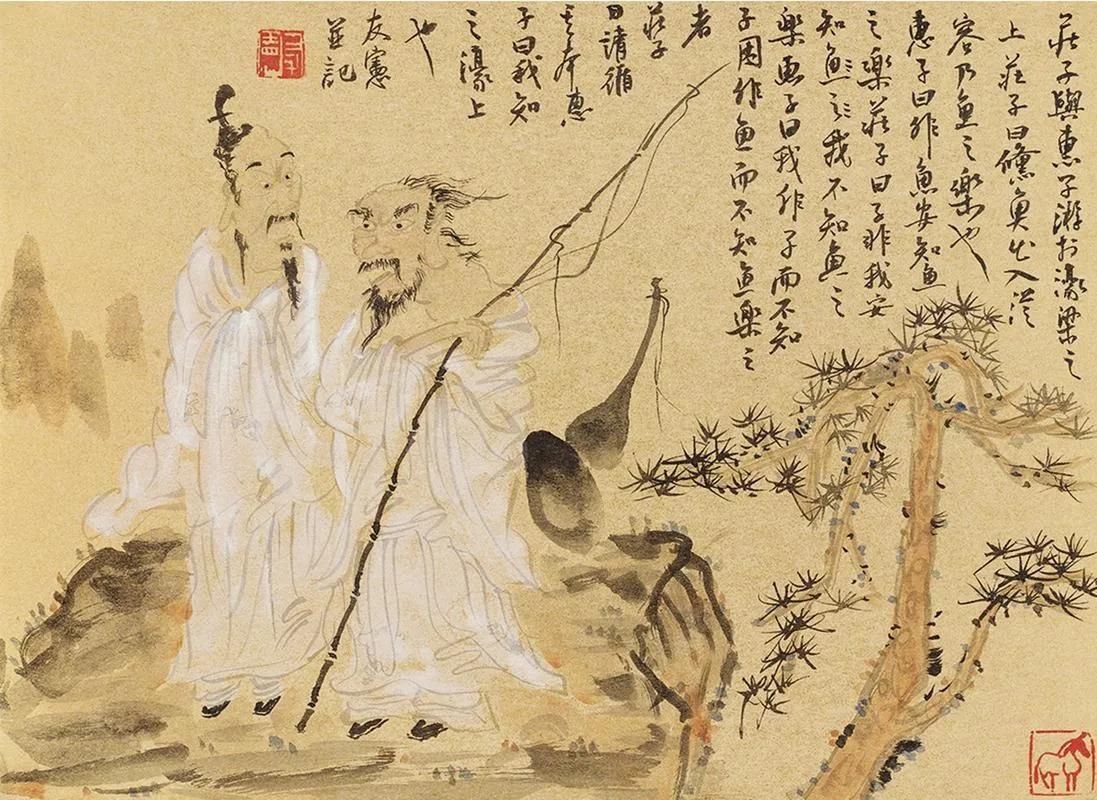 莊子與惠子游於濠梁之
上莊子曰鯈魚出入從
容乃魚之樂也
惠子曰非魚安知魚
之樂莊子曰子非我安
知魚之我不知魚之
樂惠子曰我非子而不知
子固非魚而不知魚樂之
者
莊子
曰請循
其本惠
子曰我知
之濠上
也
友憲
並記